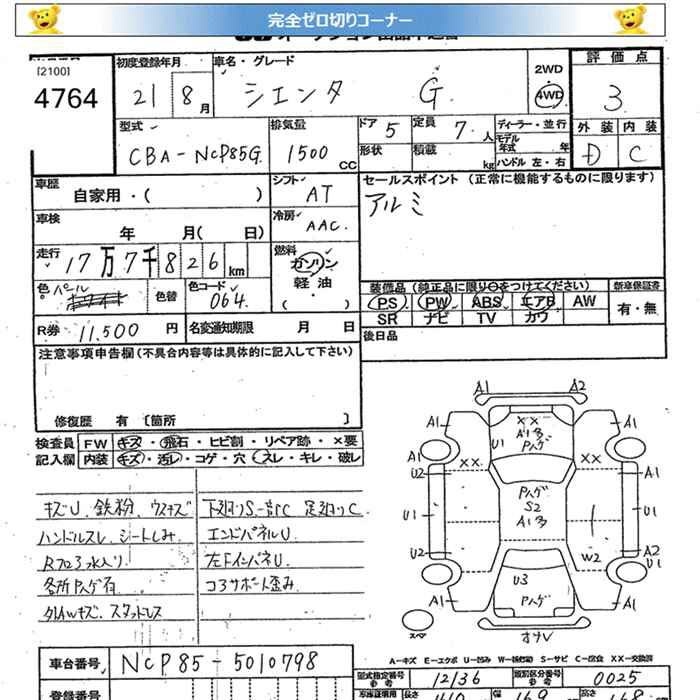 完全ゼロ切りコーナー
[2100]
4764
初度登録年月
21 8月
車名・グレード
シエンタ G
2WD
4WD
評価点
3
型式
CBA-NCP85G
排気量
1500 CC
ドア 5
定員 7人
形状
積載 kg
ディーラー・並行
モデル年式 年
ハンドル 左・右
外装 内装
D C
車歴
自家用・( )
シフト
AT
セールスポイント (正常に機能するものに限ります)
アルミ
車検
年 月( 日)
冷房
AAC
走行
17万7千826km
燃料
ガソリン
軽油
・( )
色
パール
色替
色コード
064
装備品(純正品に限り○をつけてください)
新車保証書
PS PW ABS エアB AW
SR ナビ TV カワ
有・無
R券 11,500円
名変通知期限 月 日
後日品
注意事項申告欄(不具合内容等は具体的に記入して下さい)
修復歴 有 〔箇所 〕
検査員 FW キズ・飛石・ヒビ割・リペア跡・×要
記入欄 内装 キズ・汚レ・コゲ・穴・スレ・キレ・破レ
キズU 鉄粉 ウスキズ
ハンドルスレ シートしみ
各所Pハゲ有
外AWキズ スタットレス
エンドパネルU
左FインパネU
コアサポート歪み
A1 A2
A1 A1
U1 XX A1多 Pハゲ
XX XX
U2 A1
Pハゲ S2 A1多
U1 U1
U2 A2
W2 U1
U3 Pハゲ
A1 A1
スペア
オオV
A-キズ E-エクボ U-凹み S-サビ C-腐食 XX-交換済
車台番号 NCP85-5010798
型式指定番号 参考 12136
類別区分番号 参考 0025
登録番号
長さ 410 幅 169 高さ 168